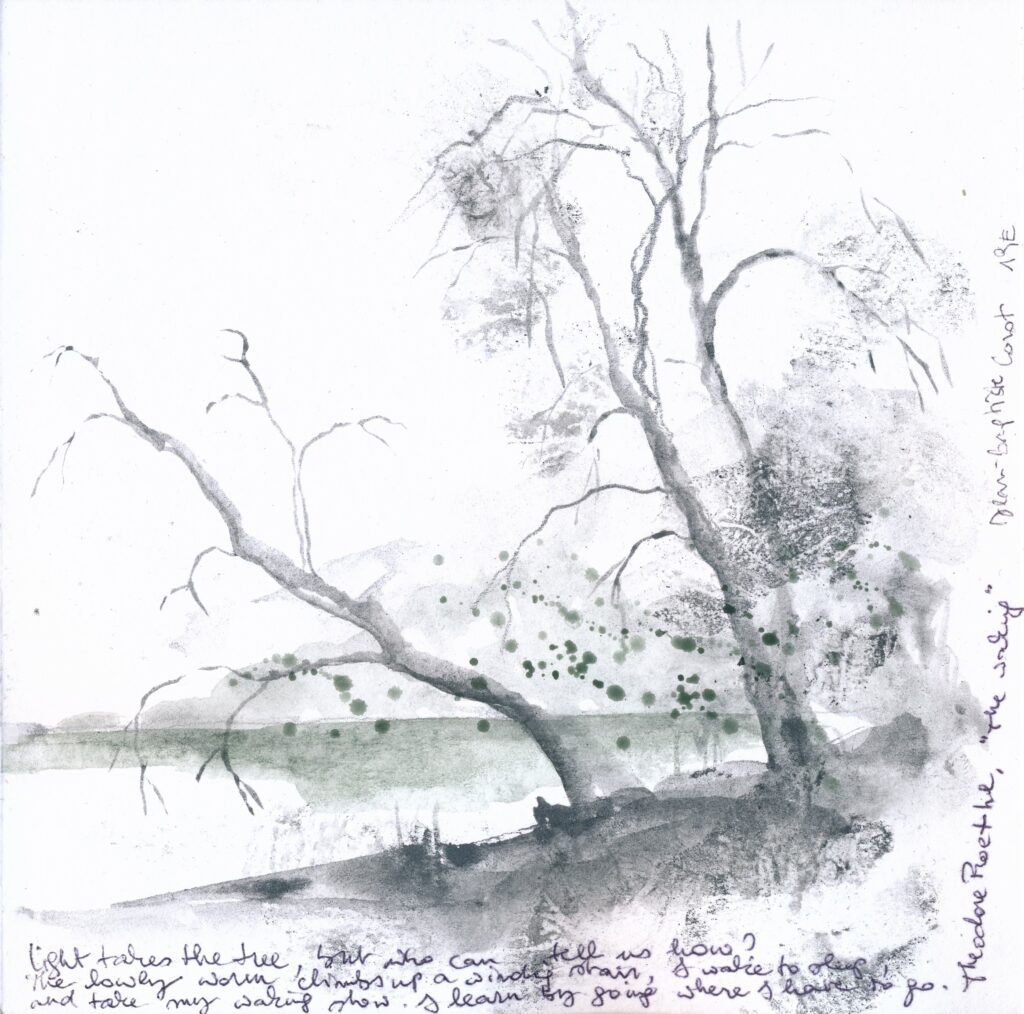 light takes the tree, but who can tell us how?
The lowly worm climbs up a winding stair, I wake to sleep
and take my waking slow. I learn by going where I have to go.
Theodore Roethke, "the waking"
Jean-Baptiste Corot 19E